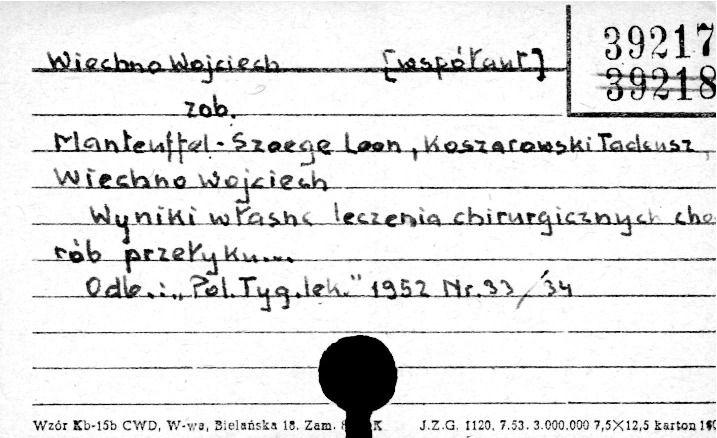 39217
39218
Wiechno Wojciech [współaut]
zob.
Manteuffel-Szoege Leon, Koszarowski Tadeusz,
Wiechno Wojciech
Wyniki własne leczenia chirurgicznych cho
rób przełyku...
Odb.: „Pol. Tyg. lek." 1952 Nr. 33/34
Wzór Kb-15b CWD, W-wa, Bielańska 18. Zam. J.Z.G. 1120. 7.53. 3.000.000 7,5×12,5 karton